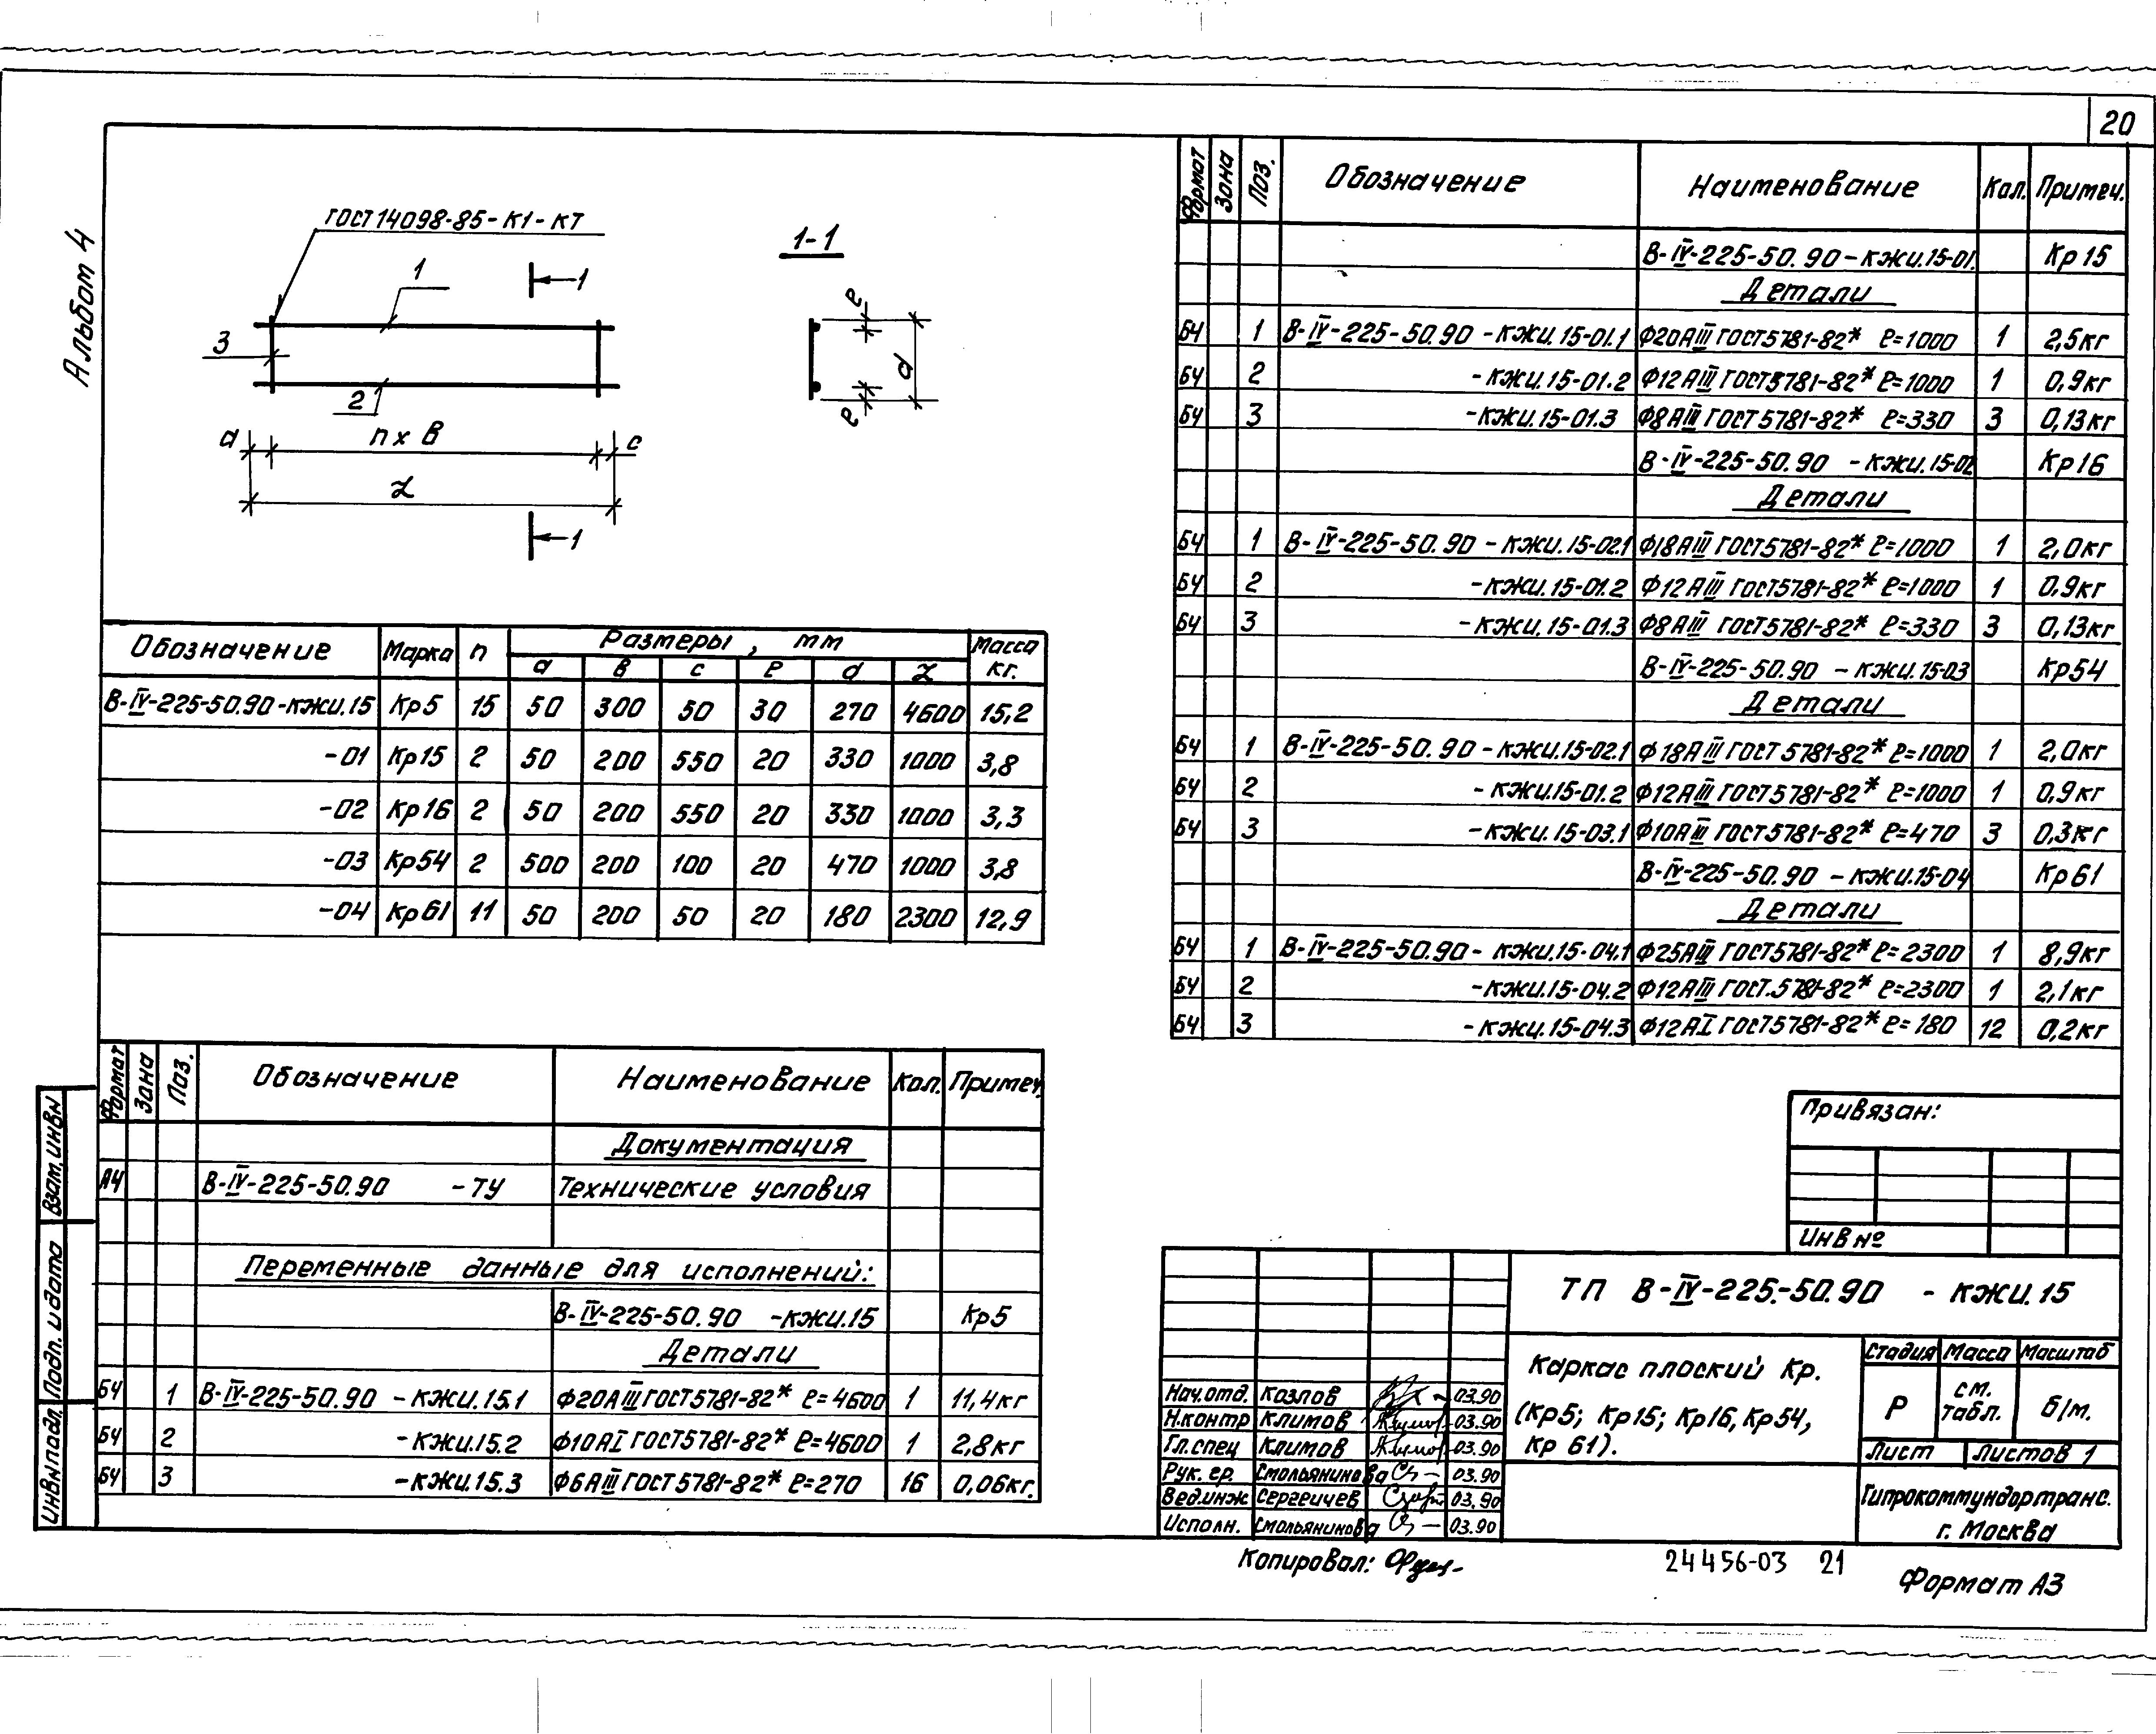 20
Альбом 4
ГОСТ 14098-85-К1-КТ
1
1
1-1
3
2
e
d
e
а
n x в
с
L
1
Обозначение Марка n Размеры, мм Масса кг.
а в с e d L
В-IV-225-50.90-кжи.15 Кр5 15 50 300 50 30 270 4600 15,2
-01 Кр15 2 50 200 550 20 330 1000 3,8
-02 Кр16 2 50 200 550 20 330 1000 3,3
-03 Кр54 2 500 200 100 20 470 1000 3,8
-04 Кр61 11 50 200 50 20 180 2300 12,9
Формат Зона Поз. Обозначение Наименование Кол. Примеч.
Документация
А4 В-IV-225-50.90 -ТУ Технические условия
Переменные данные для исполнений:
В-IV-225-50.90 -кжи.15 Кр5
Детали
БЧ 1 В-IV-225-50.90 -кжи.15.1 Ф20АIII ГОСТ5781-82* e=4600 1 11,4кг
БЧ 2 -кжи.15.2 Ф10АI ГОСТ5781-82* e=4600 1 2,8кг
БЧ 3 -кжи.15.3 Ф6АIII ГОСТ5781-82* e=270 16 0,06кг.
Формат Зона Поз. Обозначение Наименование Кол. Примеч.
В-IV-225-50.90-кжи.15-01. Кр15
Детали
БЧ 1 В-IV-225-50.90 -кжи.15-01.1 Ф20АIII ГОСТ5781-82* e=1000 1 2,5кг
БЧ 2 -кжи.15-01.2 Ф12АIII ГОСТ5781-82* e=1000 1 0,9кг
БЧ 3 -кжи.15-01.3 Ф8АIII ГОСТ5781-82* e=330 3 0,13кг
В-IV-225-50.90 -кжи.15-02 Кр16
Детали
БЧ 1 В-IV-225-50.90 -кжи.15-02.1 Ф18АIII ГОСТ5781-82* e=1000 1 2,0кг
БЧ 2 -кжи.15-01.2 Ф12АIII ГОСТ5781-82* e=1000 1 0,9кг
БЧ 3 -кжи.15-01.3 Ф8АIII ГОСТ5781-82* e=330 3 0,13кг
В-IV-225-50.90 -кжи.15-03 Кр54
Детали
БЧ 1 В-IV-225-50.90 -кжи.15-02.1 Ф18АIII ГОСТ5781-82* e=1000 1 2,0кг
БЧ 2 -кжи.15-01.2 Ф12АIII ГОСТ5781-82* e=1000 1 0,9кг
БЧ 3 -кжи.15-03.1 Ф10АIII ГОСТ5781-82* e=470 3 0,3кг
В-IV-225-50.90 -кжи.15-04 Кр61
Детали
БЧ 1 В-IV-225-50.90- кжи.15-04.1 Ф25АIII ГОСТ5781-82* e=2300 1 8,9кг
БЧ 2 -кжи.15-04.2 Ф12АIII ГОСТ.5781-82* e=2300 1 2,1кг
БЧ 3 -кжи.15-04.3 Ф12АI ГОСТ5781-82* e=180 12 0,2кг
Привязан:
Инв №
Взам.инв№
Подп. и дата
Инв№подл.
ТП В-IV-225.-50.90 - кжи.15
Каркас плоский Кр.
(Кр5; Кр15; Кр16, Кр54,
Кр 61).
Стадия Масса Масштаб
Р см. табл. б/м.
Лист Листов 1
Гипрокоммундортранс.
г. Москва
Нач.отд. Козлов 03.90
Н.контр Климов 03.90
Гл.спец Климов 03.90
Рук. гр. Смольянинова 03.90
Вед.инж Сергеичев 03.90
Исполн. Смольянинова 03.90
Копировал:
24456-03 21
Формат А3